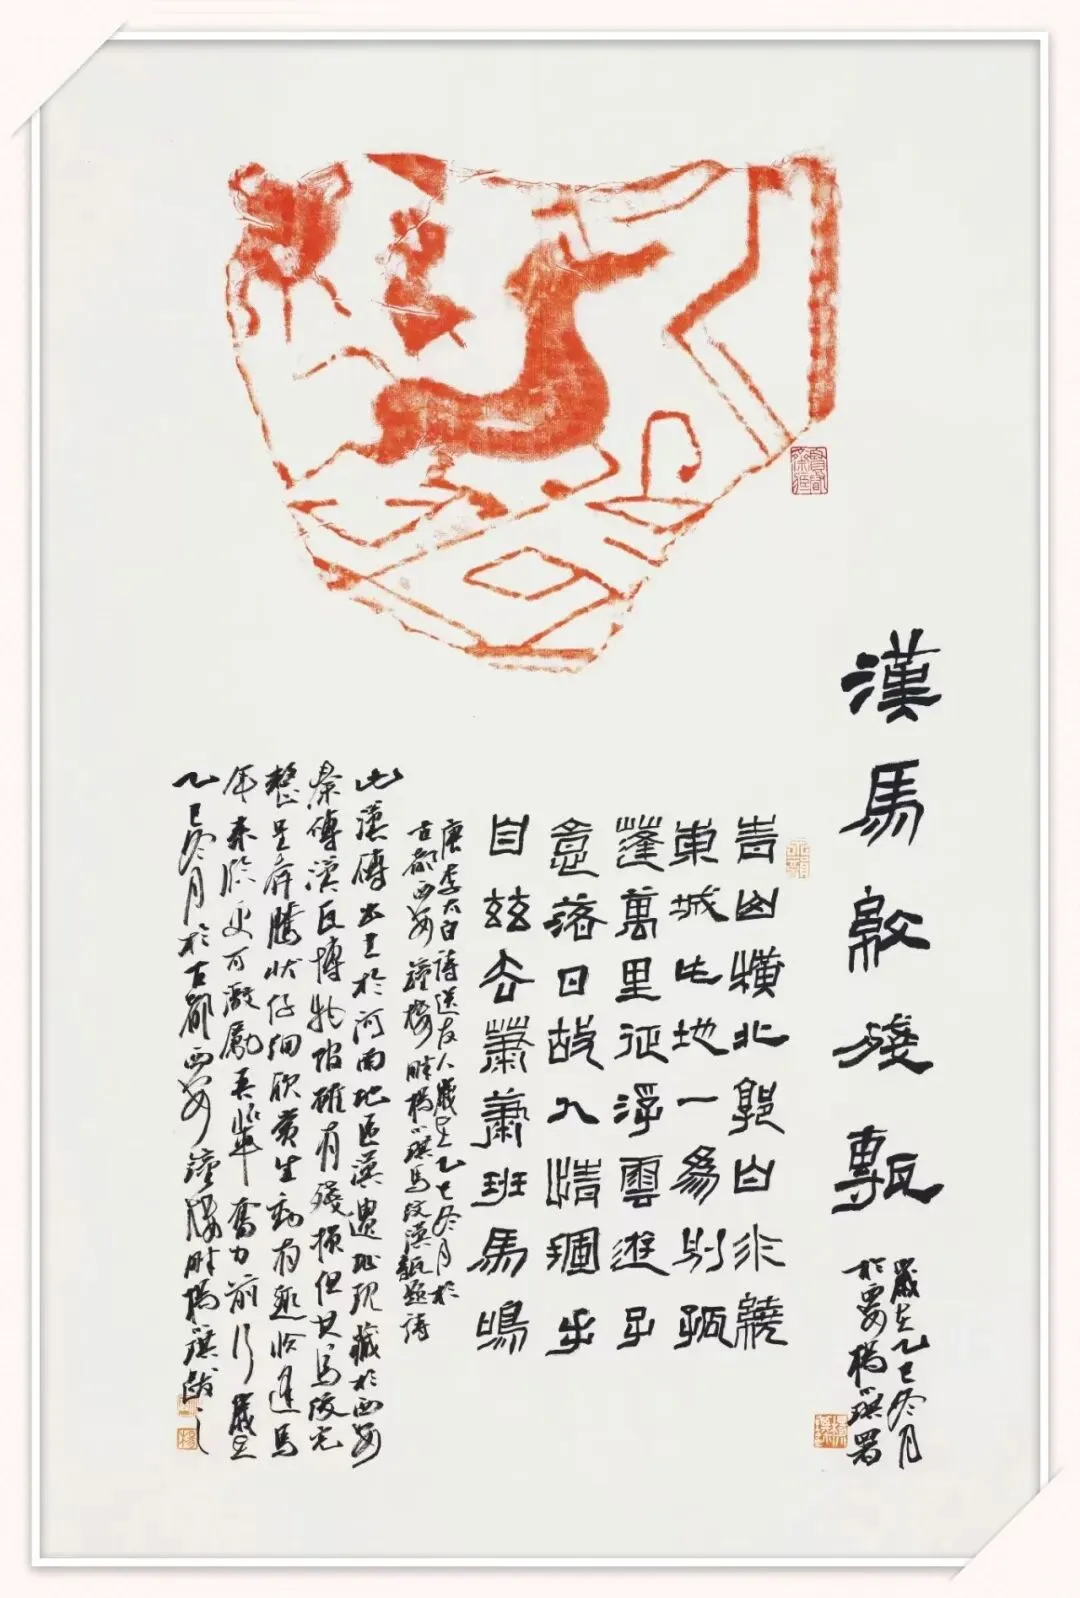 漢馬紋殘甎
歲在乙巳冬月
於西安楊琪署
青山橫北郭白水繞
東城此地一為別孤
蓬萬里征浮雲遊子
意落日故人情揮手
自茲去蕭蕭班馬鳴
唐李太白詩送友人歲在乙巳冬月於
古都西安鐘樓畔楊琪馬紋漢甎題詩
此漢磚出土於河南地區漢遺址現藏於西安
秦磚漢瓦博物館雖有殘損但其馬紋完
整呈奔騰狀仔細欣賞生動有趣恰逢馬
年來臨更可激勵吾輩奮力前行歲在
乙巳冬月於古都西安鐘樓畔楊琪跋之